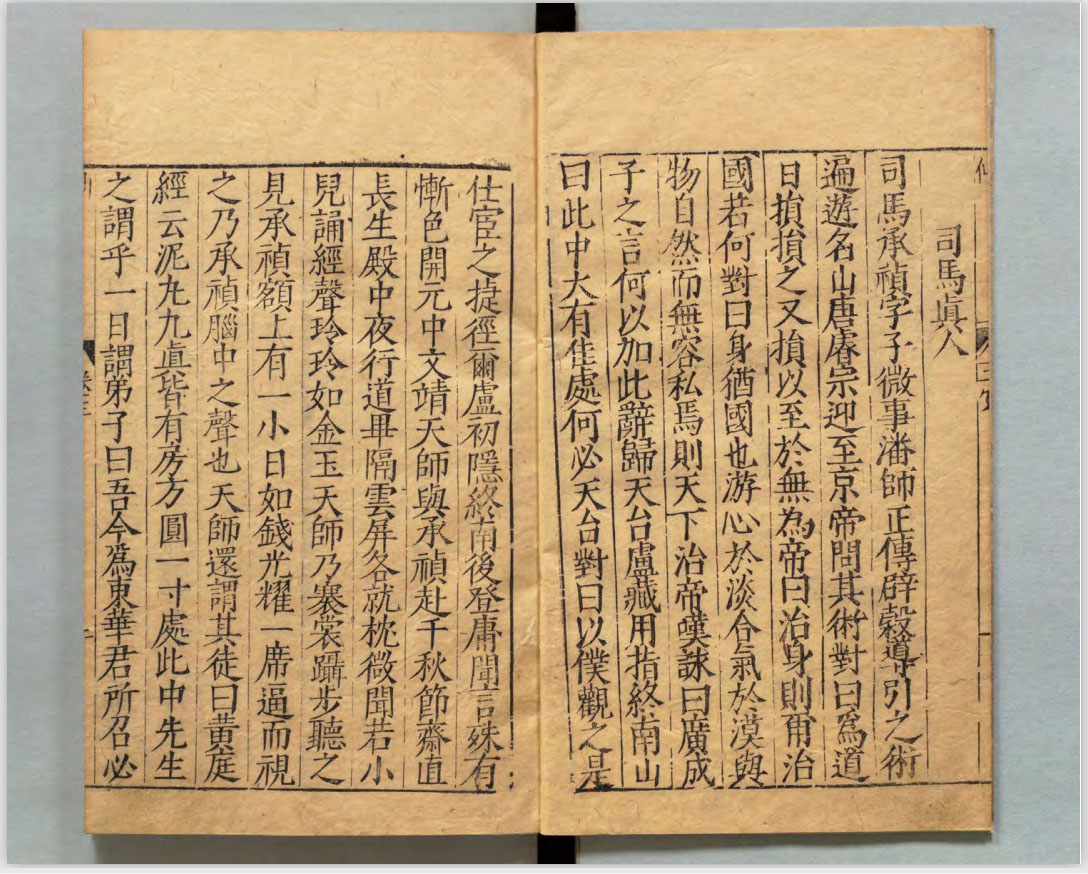 司馬眞人
司馬承禎字子微事潘師正傳辟穀導引之術
遍遊名山唐睿宗迎至京帝問其術對曰爲道
日損損之又損以至於無為帝曰治身則爾治
國若何對曰身猶國也游心於淡合氣於漠與
物自然而無容私焉則天下治帝嘆詠曰廣成
子之言何以加此辭歸天台盧藏用指終南山
曰此中大有佳處何必天台對曰以僕觀之是
仕宦之捷徑爾盧初隱終南後登庸聞言殊有
慚色開元中文靖天師與承禎赴千秋節齋直
長生殿中夜行道畢隔雲屏各就枕微聞若小
兒誦經聲玲玲如金玉天師乃褰裳躡步聽之
見承禎額上有一小日如錢光耀一席逼而視
之乃承禎腦中之聲也天師還謂其徒曰黄庭
經云泥九九眞皆有房方圓一寸處此中先生
之謂乎一日謂弟子曰吾今爲東華君所召必